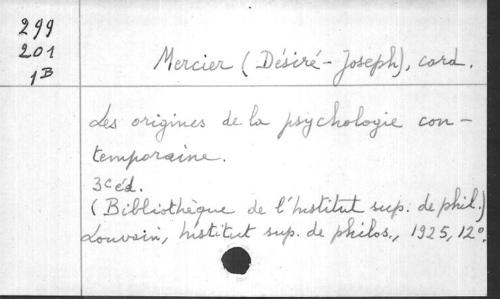 299
201
1B
Mercier (Désiré-Joseph), card.
Les origines de la psychologie con-
temporaine.
3e éd.
(Bibliothèque de l'Institut sup. de phil.)
Louvain, Institut sup. de philos., 1925, 12º.